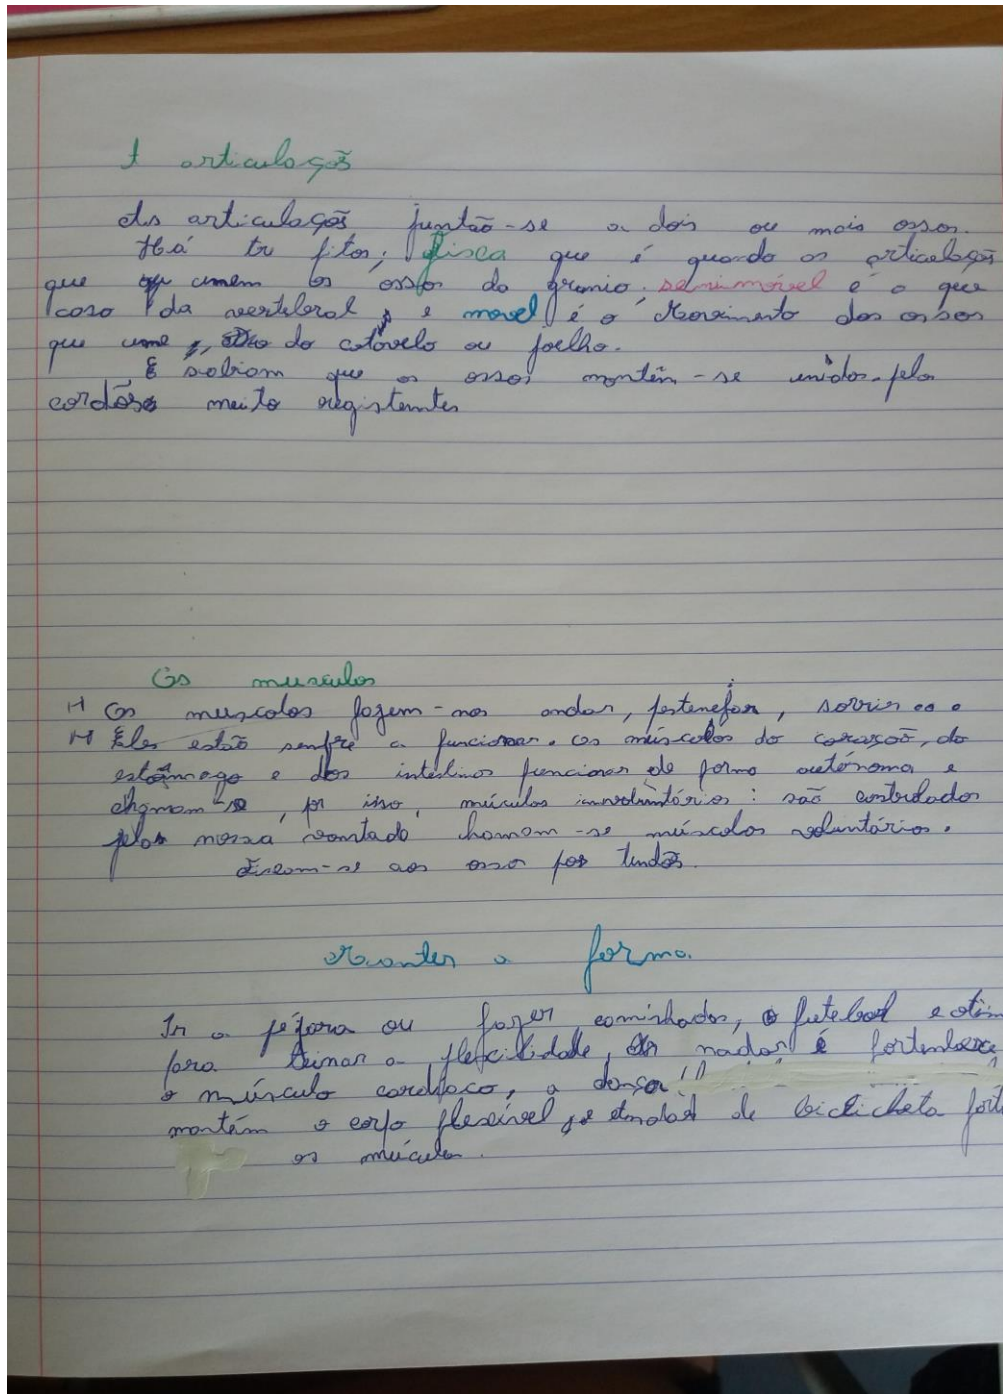 A articulaçõs
As articulaçõs juntão-se a dois ou mais ossos.
Há tr fitos; fisca que é quando as articulaçõs
que unem os ossos do granio; semimóvel é o que
caso da vertebral, e movel é o Movimento dos ossos
que une, do cotovelo ou joelho.
E sabiam que os ossos montên-se unidos pelos
cordõs muito registentes
Os musculos
Os muscolos fazem-nos andar, pestenejar, sorrir
Eles estão sempre a funcionar. os múscolos do coraçoõ, do
estômago e dos intestinos funcionar de forma autónoma e
chamam-se, por isso, músculos involuntários: são controlados
pela nossa vontade chamam-se múscolos voluntários.
Fixam-se aos osso por tendõs.
Manter a forma.
Ir a pé para ou fazer caminhados, o futebol e otim
para treinar a flexcilidade, nadar é fortenlece
o músculo cardíaco, a dança!!
montém o corpo flexível, e andar de bicicheta fort
os múculos.